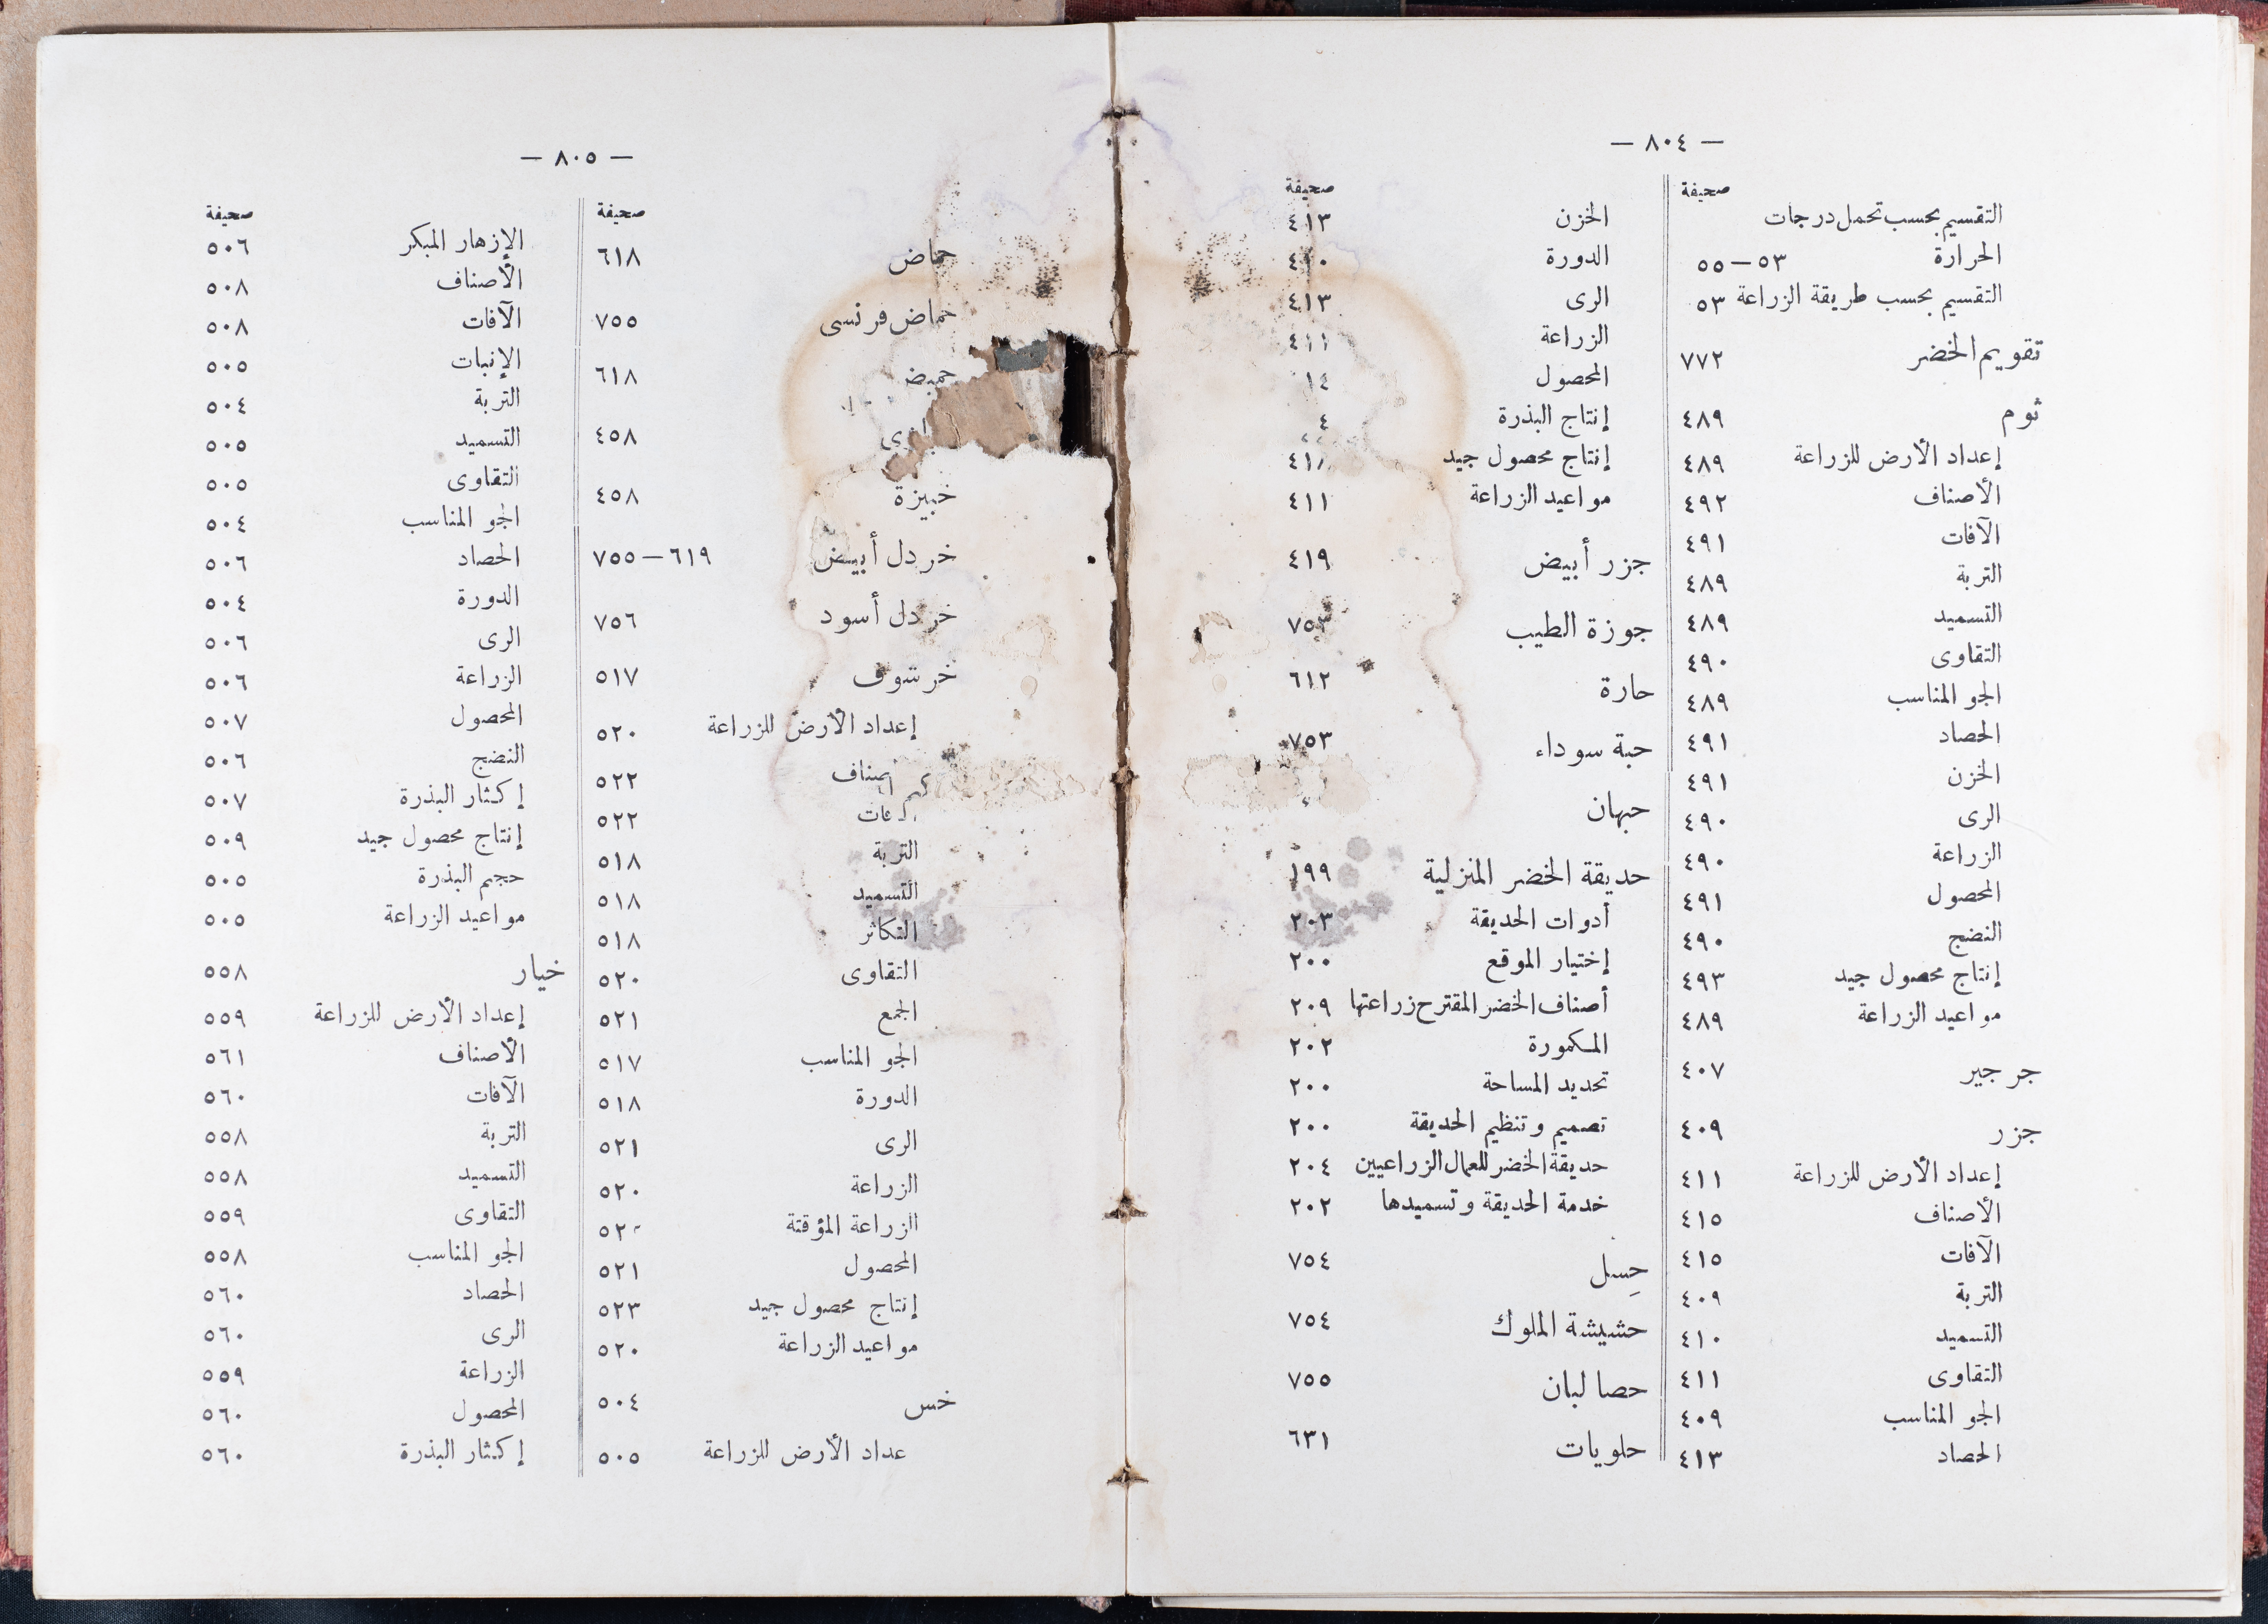 — ٨٠٤ —
صحيفة
التقسيم بحسب تحمل درجات
الحرارة ٥٣ — ٥٥
التقسيم بحسب طريقة الزراعة ٥٣
تقويم الخضر ٧٧٢
ثوم ٤٨٩
إعداد الأرض للزراعة ٤٨٩
الأصناف ٤٩٢
الآفات ٤٩١
التربة ٤٨٩
التسميد ٤٨٩
التقاوى ٤٩٠
الجو المناسب ٤٨٩
الحصاد ٤٩١
الخزن ٤٩١
الرى ٤٩٠
الزراعة ٤٩٠
المحصول ٤٩١
النضج ٤٩٠
إنتاج محصول جيد ٤٩٣
مواعيد الزراعة ٤٨٩
جرجير ٤٠٧
جزر ٤٠٩
إعداد الأرض للزراعة ٤١١
الأصناف ٤١٥
الآفات ٤١٥
التربة ٤٠٩
التسميد ٤١٠
التقاوى ٤١١
الجو المناسب ٤٠٩
الحصاد ٤١٣
صحيفة
الخزن ٤١٣
الدورة
الرى ٤١٣
الزراعة ٤١١
المحصول
إنتاج البذرة
إنتاج محصول جيد
مواعيد الزراعة ٤١١
جزر أبيض ٤١٩
جوزة الطيب ٧٥٣
حارة ٦١٢
حبة سوداء ٧٥٣
حبهان
حديقة الخضر المنزلية ١٩٩
أدوات الحديقة ٢٠٣
إختيار الموقع ٢٠٠
أصناف الخضر المقترح زراعتها ٢٠٩
المكمورة ٢٠٢
تحديد المساحة ٢٠٠
تصميم وتنظيم الحديقة ٢٠٠
حديقة الخضر للعمال الزراعيين ٢٠٤
خدمة الحديقة وتسميدها ٢٠٢
حِسل ٧٥٤
حشيشة الملوك ٧٥٤
حصا لبان ٧٥٥
حلويات ٦٣١
— ٨٠٥ —
صحيفة
حماض ٦١٨
حماض فرنسى ٧٥٥
حميض ٦١٨
٤٥٨
خبيزة ٤٥٨
خردل أبيض ٦١٩ — ٧٥٥
خردل أسود ٧٥٦
خرشوف ٥١٧
إعداد الأرض للزراعة ٥٢٠
٥٢٢
٥٢٢
التربة ٥١٨
التسميد ٥١٨
التكاثر ٥١٨
التقاوى ٥٢٠
الجمع ٥٢١
الجو المناسب ٥١٧
الدورة ٥١٨
الرى ٥٢١
الزراعة ٥٢٠
الزراعة المؤقتة ٥٢٠
المحصول ٥٢١
إنتاج محصول جيد ٥٢٣
مواعيد الزراعة ٥٢٠
خس ٥٠٤
عداد الأرض للزراعة ٥٠٥
صحيفة
الإزهار المبكر ٥٠٦
الأصناف ٥٠٨
الآفات ٥٠٨
الإنبات ٥٠٥
التربة ٥٠٤
التسميد ٥٠٥
التقاوى ٥٠٥
الجو المناسب ٥٠٤
الحصاد ٥٠٦
الدورة ٥٠٤
الرى ٥٠٦
الزراعة ٥٠٦
المحصول ٥٠٧
النضج ٥٠٦
إكثار البذرة ٥٠٧
إنتاج محصول جيد ٥٠٩
حجم البذرة ٥٠٥
مواعيد الزراعة ٥٠٥
خيار ٥٥٨
إعداد الأرض للزراعة ٥٥٩
الأصناف ٥٦١
الآفات ٥٦٠
التربة ٥٥٨
التسميد ٥٥٨
التقاوى ٥٥٩
الجو المناسب ٥٥٨
الحصاد ٥٦٠
الرى ٥٦٠
الزراعة ٥٥٩
المحصول ٥٦٠
إكثار البذرة ٥٦٠